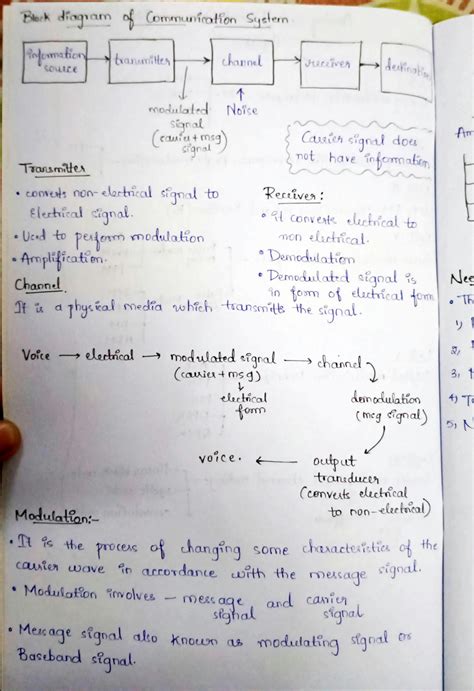 Block diagram of Communication System.
information source
transmitter
channel
receiver
destination
modulated signal (carrier + msg) signal
Noise
Carrier signal does
not have information
Transmitter
• converts non-electrical signal to
Electrical signal.
• Used to perform modulation
• Amplification.
Receiver:
• it converts electrical to
non electrical.
• Demodulation
• Demodulated signal is
in form of electrical form
Channel
It is a physical media which transmitts the signal.
Voice → electrical → modulated signal → channel
(carrier + msg)
electrical
form
demodulation
(msg signal)
voice. ← output
transducer
(converts electrical
to non-electrical)
Modulation:-
• It is the process of changing some characteristics of the
carrier wave in accordance with the message signal.
• Modulation involves – message and carrier
signal signal
• Message signal also known as modulating signal or
Baseband signal.
Am
Nec
• Th
1)
2,
3,
4) T
5, N